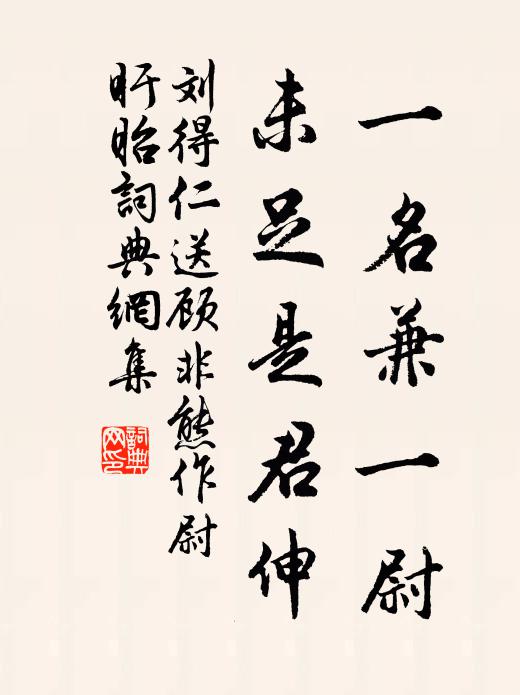 一名兼一尉
未足是君伸
刘得仁送顾非熊作尉
盱眙詞典網集
詞典网印